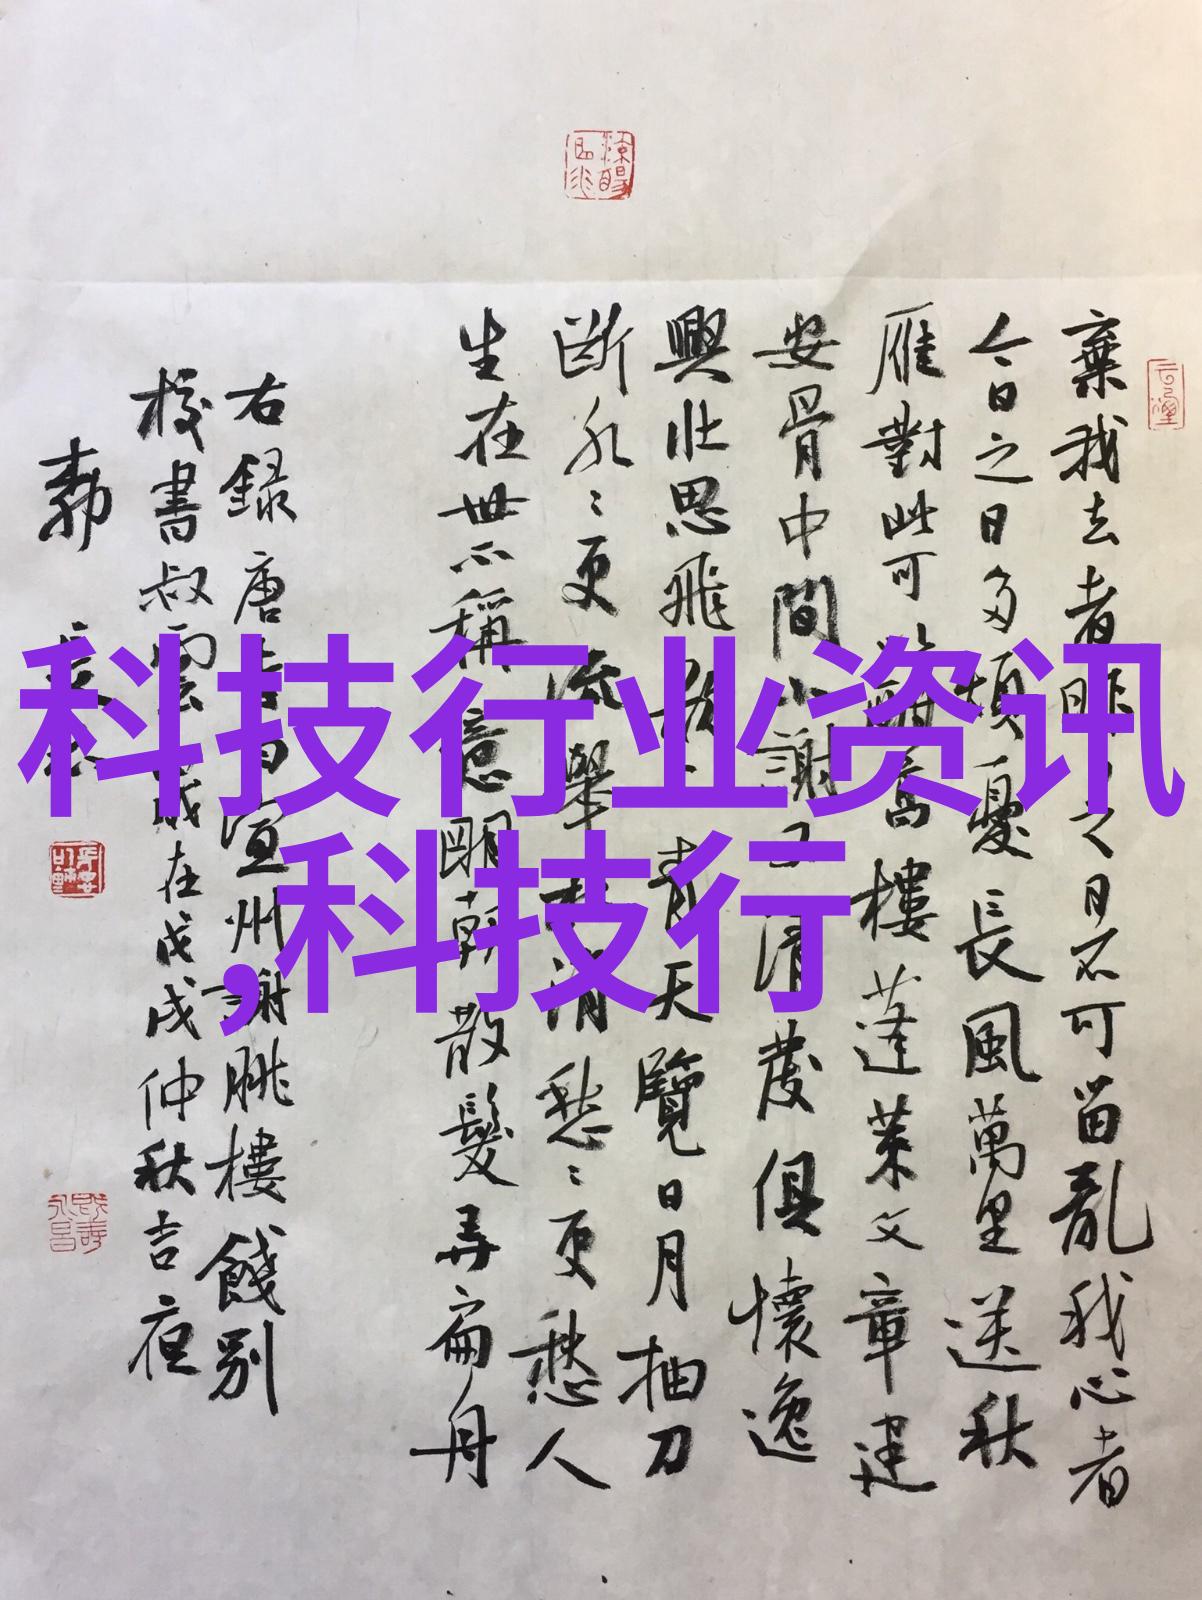 科技行业资讯
,科技行
棄我去者昨日之日不可留亂我心者
今日之日多煩憂長風萬里送秋
雁對此可以酣高樓蓬萊文章建
安骨中間小謝又清發俱懷逸
興壯思飛欲上青天覽日月抽刀
斷水〻更流舉杯消愁〻更愁人
生在世不稱意明朝散髮弄扁舟
右録唐李白宣州謝朓樓餞別
校書叔雲歲在戊戌仲秋吉夜